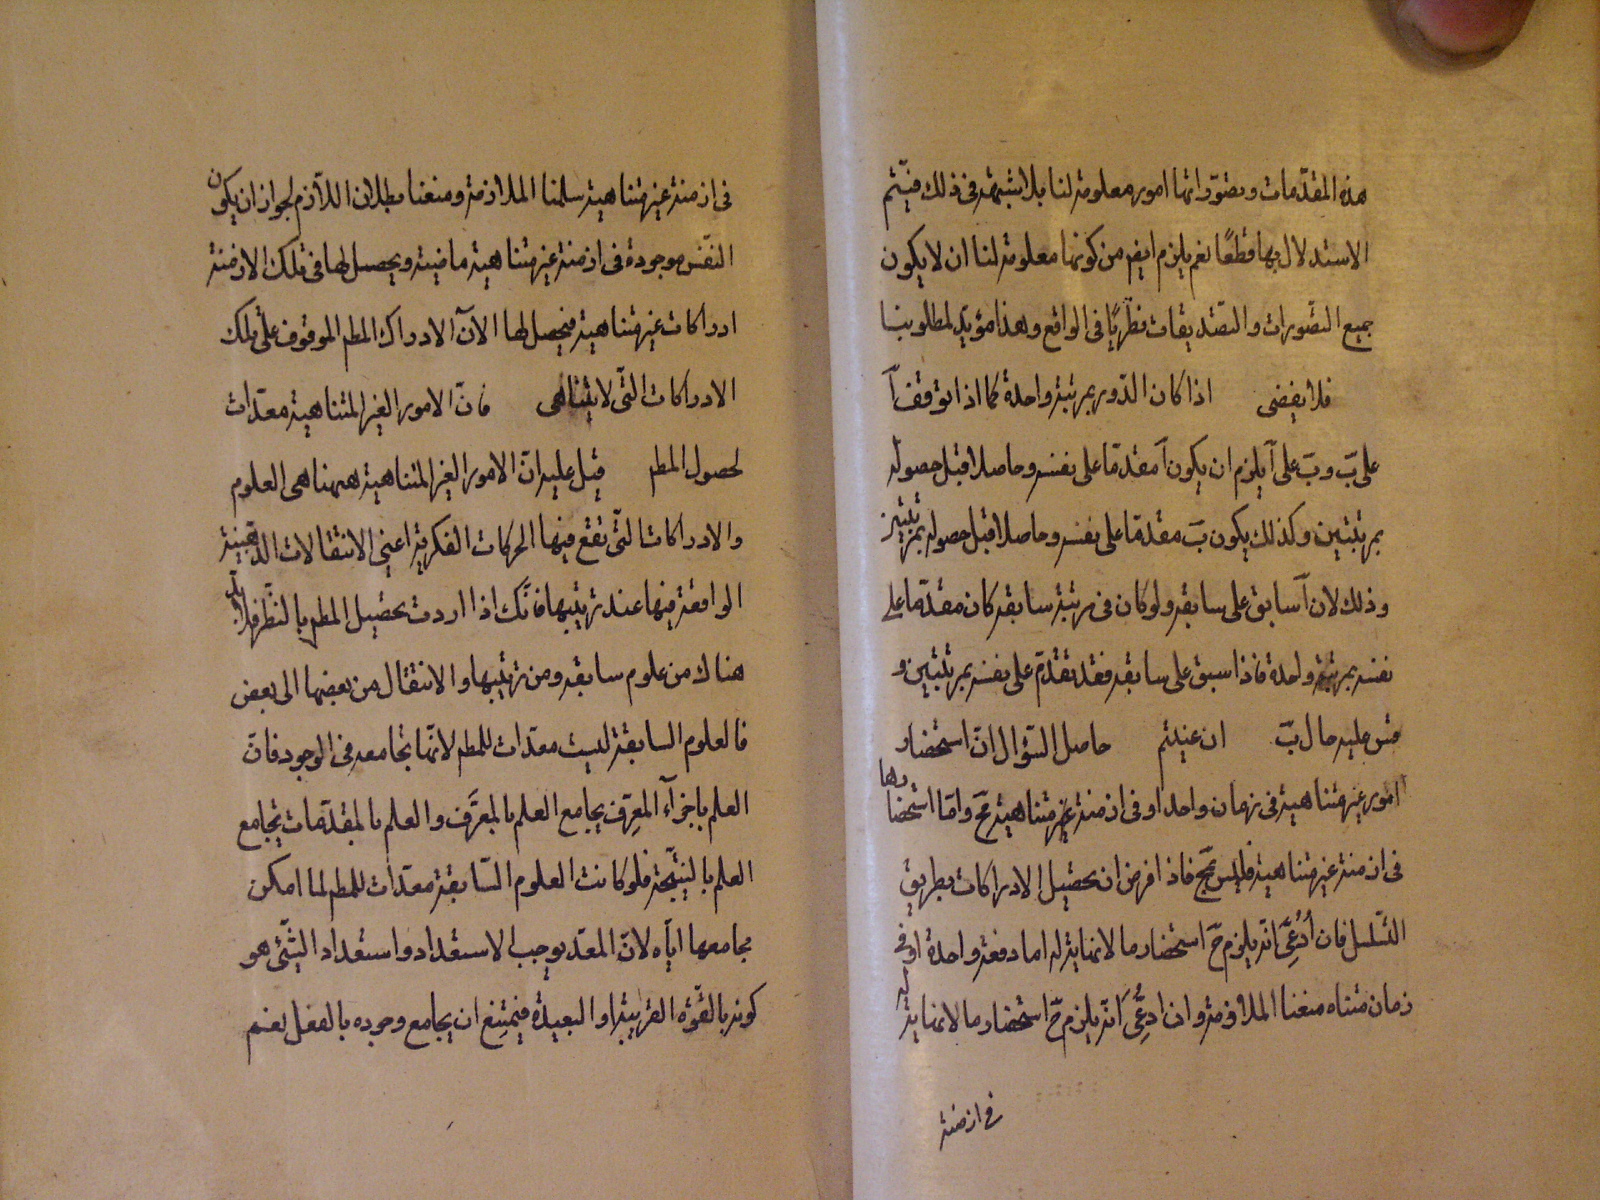 هذه المقدّمات وبصوّراتها امور معلومة لنا بلا شبهة فى ذلك فيتم
الاستدلال بها قطعًا نعم يلزم ايض من كونها معلومة لنا ان لا يكون
جميع التصورات والتصديقات نظريًا فى الواقع وهذا مؤيد لمطلوبنا
فلا يفضى اذا كان الدّور بمرتبة واحدة كما اذا توقف آ
على بَ وبَ على آ يلزم ان يكون آ مقدمًا على نفسه وحاصلا قبل حصوله
بمرتبتين وكذلك يكون بَ مقدمًا على نفسه وحاصلا قبل حصوله بمرتبتين
وذلك لان آ سابق على سابقه ولو كان فى مرتبة سابقه كان مقدمًا على
نفسه بمرتبة واحدة فاذا سبق على سابقه فقد تقدّم على نفسه بمرتبتين و
قس عليه حال بَ ان عنيتم حاصل السّؤال انّ استحضار
امور غير متناهية فى زمان واحد او فى ازمنة غير متناهية مح وامّا استحضارها
فى ازمنة غير متناهية فليس بمح فاذا فرض ان تحصيل الادراكات بطريق
التّسلسل فان اُدُّعِىَ انّه يلزم حّ استحضار ما لا نهاية له اما دفعة واحدة او فى
زمان متناه منعنا الملازمة وان ادُّعِىَ انّه يلزم حّ استحضار ما لا نهاية له
فى ازمنة
فى ازمنة غير متناهية سلمنا الملازمة ومنعنا بطلان اللازم لجواز ان يكون
النفس موجودة فى ازمنة غير متناهية ماضية ويحصل لها فى تلك الازمنة
ادراكات غير متناهية فيحصل لها الآن الادراك المطم الموقوف على تلك
الادراكات التّى لا يتناهى فانّ الامور الغير المتناهية معدّات
لحصول المطم قيل عليه انّ الامور الغير المتناهية ههنا هى العلوم
والادراكات التّى تقع فيها الحركات الفكرية اعنى الانتقالات الذهنية
الواقعة فيها عند ترتيبها فانّك اذا اردت تحصيل المطم بالنّظر فلا بدّ
هناك من علوم سابقه ومن ترتيبها والانتقال من بعضها الى بعض
فالعلوم السابقة ليست معدّات للمطم لانّها تجامعه فى الوجود فانّ
العلم باجزآء المعرِّف يجامع العلم بالمعرَّف والعلم بالمقدّمات يجامع
العلم بالنتيجة فلو كانت العلوم السّابقة معدّات للمطم لما امكن
مجامعها ايّاه لانّ المعدّ يوجب الاستعداد واستعداد الشّئ هو
كونه بالقّوة القريبة او البعيدة فيمتنع ان يجامع وجوده بالفعل نعم